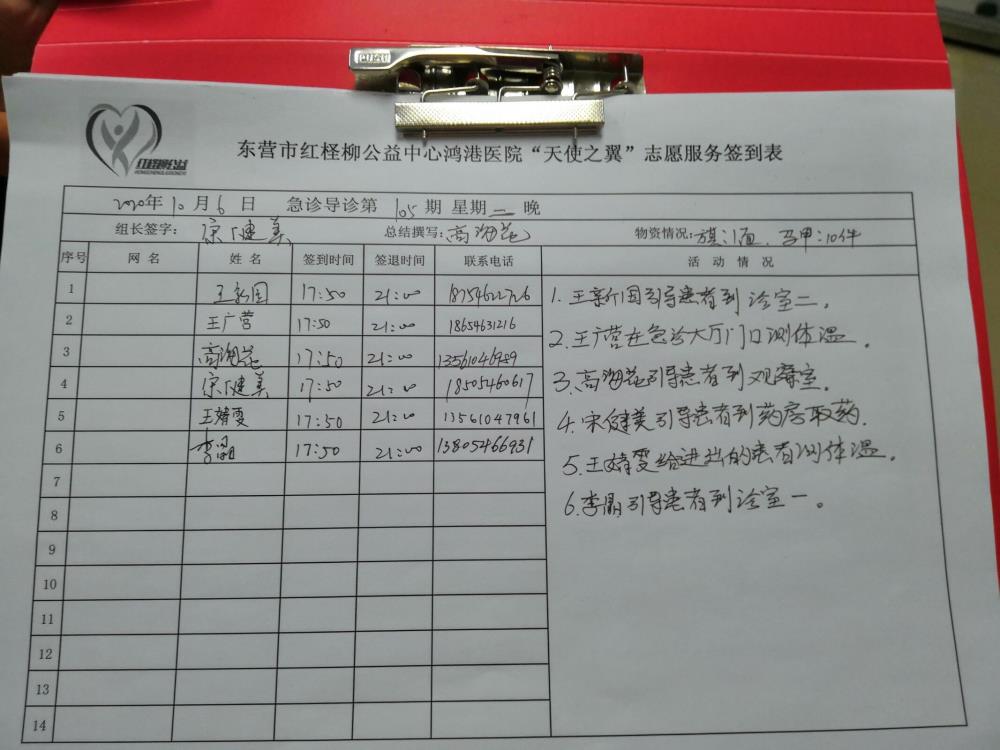 CUZU
红柽柳公益
东营市红柽柳公益中心鸿港医院“天使之翼”志愿服务签到表
2020年10月6日 急诊导诊第105期 星期二晚
组长签字：宋健美 总结撰写：高海花 物资情况：旗：1面、马甲：10件
序号 网名 姓名 签到时间 签退时间 联系电话 活动情况
1 王新国 17:50 21:00 18754622726
2 王广营 17:50 21:00 18654631216
3 高海花 17:50 21:00 13561046989
4 宋健美 17:50 21:00 18505460617
5 王婧雯 17:50 21:00 13561047961
6 李晶 17:50 21:00 13805466931
7
8
9
10
11
12
13
14
1.王新国引导患者到诊室二。
2.王广营在急诊大厅门口测体温。
3.高海花引导患者到观察室。
4.宋健美引导患者到药房取药.
5.王婧雯给进出的患者测体温。
6.李晶引导患者到诊室一。